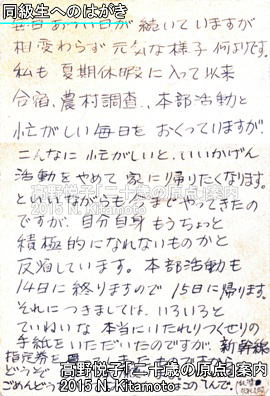 同級生へのはがき
毎日あつい日が続いていますが
相変わらず元気な様子何よりです。
私も夏期休暇に入って以来
合宿、農村調査、本部活動と
忙がしい毎日をおくっていますが、
こんなに忙がしいと、いいかげん
活動をやめて家に帰りたくなります。
高野悦子「二十歳の原点」案内
2015 N. Kitamoto
といいながらも今までやってきたの
ですが、自分自身もうちょっと
積極的になれないものかと
反省しています。本部活動も
14日に終りますので15日に帰ります。
それにつきましては、いろいろと
ていねいな本当にいたれりつくせりの
手紙をいただいたのですが、新幹線
指定券を
どうぞ
ごめんどう
高野悦子「二十歳の原点」案内
2015 N. Kitamoto